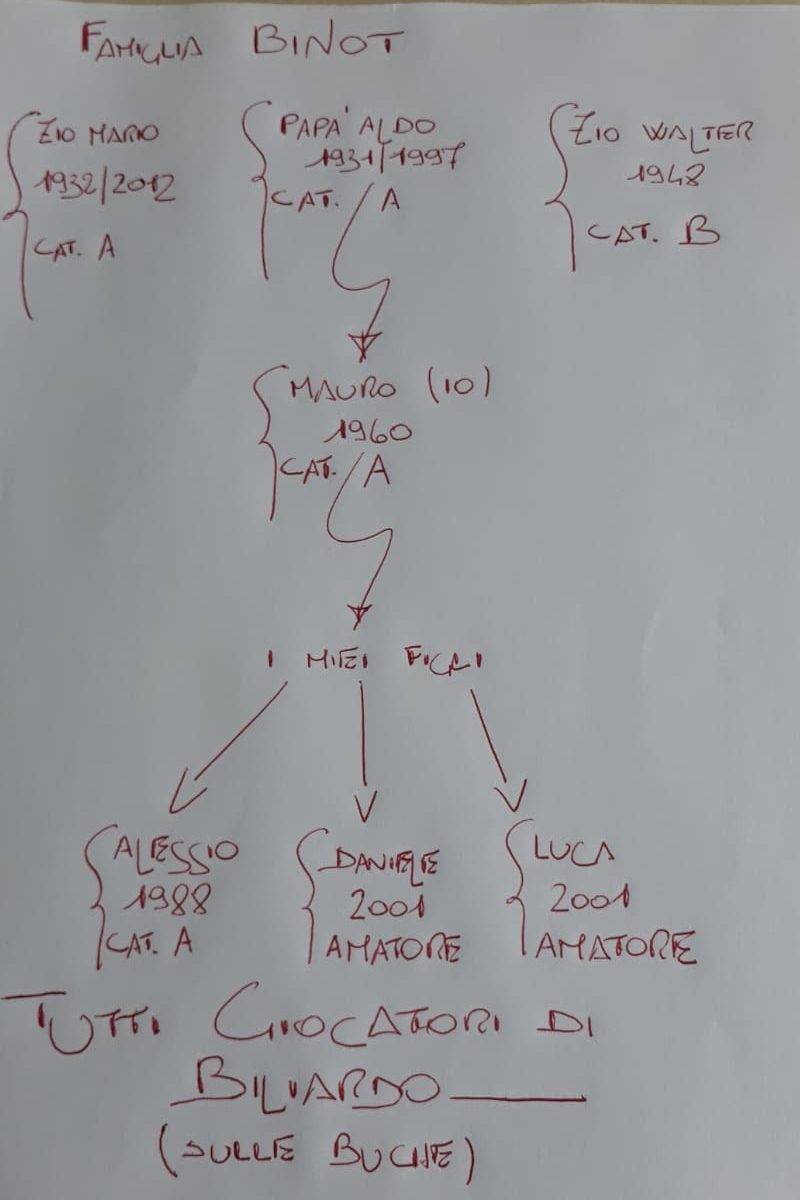 FAMIGLIA BINOT
ZIO MARIO
1932/2012
CAT. A
PAPA' ALDO
1931/1997
CAT. A
ZIO WALTER
1948
CAT. B
MAURO (IO)
1960
CAT. A
I MIEI FIGLI
ALESSIO
1988
CAT. A
DANIELE
2001
AMATORE
LUCA
2001
AMATORE
TUTTI GIOCATORI DI
BILIARDO
(SULLE BUCHE)